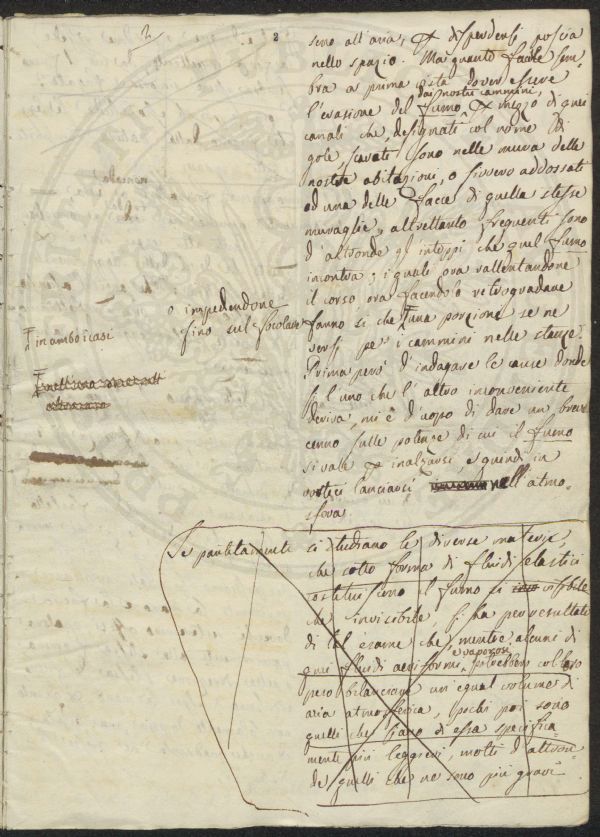 2
sono all'aria, e disperdersi poscia
nello spazio. Ma quanto facile sem-
bra a prima vista dover essere
dai nostri cammini,
l'evasione del fumo per mezzo di quei
canali che, designati col nome di
gole, scavati sono nelle mura delle
nostre abitazioni, o sivvero addossati
ad una delle facce di quelle stesse
muraglie, altrettanto frequenti sono
d'altronde gl'intoppi che quel fumo
incontra; i quali ora rallentandone
o impedendone
il corso ora facendolo retrogradare
fino sul focolare
fanno sì che una porzione se ne
in ambo i casi
versi per i cammini nelle stanze.
Prima però d'indagare le cause donde
sì l'uno che l'altro inconveniente
deriva, mi è d'uopo di dare un breve
cenno sulle potenze di cui il fumo
si vale per inalzarsi, e quindi in
vortici lanciarsi nell'atmo-
sfera.
Se partitamente si studiano le diverse materie,
che sotto forma di fluidi elastici
costituiscono il fumo sì visibile
che invisibile, si ha per resultato
di tal esame che mentre alcuni di
e vaporosi
quei fluidi aeriformi, potrebbero col loro
peso bilanciare un egual volume di
aria atmosferica, pochi poi sono
quelli che siano di essa specifica
mente più leggieri, molti d'altron-
de quelli che ne sono più gravi